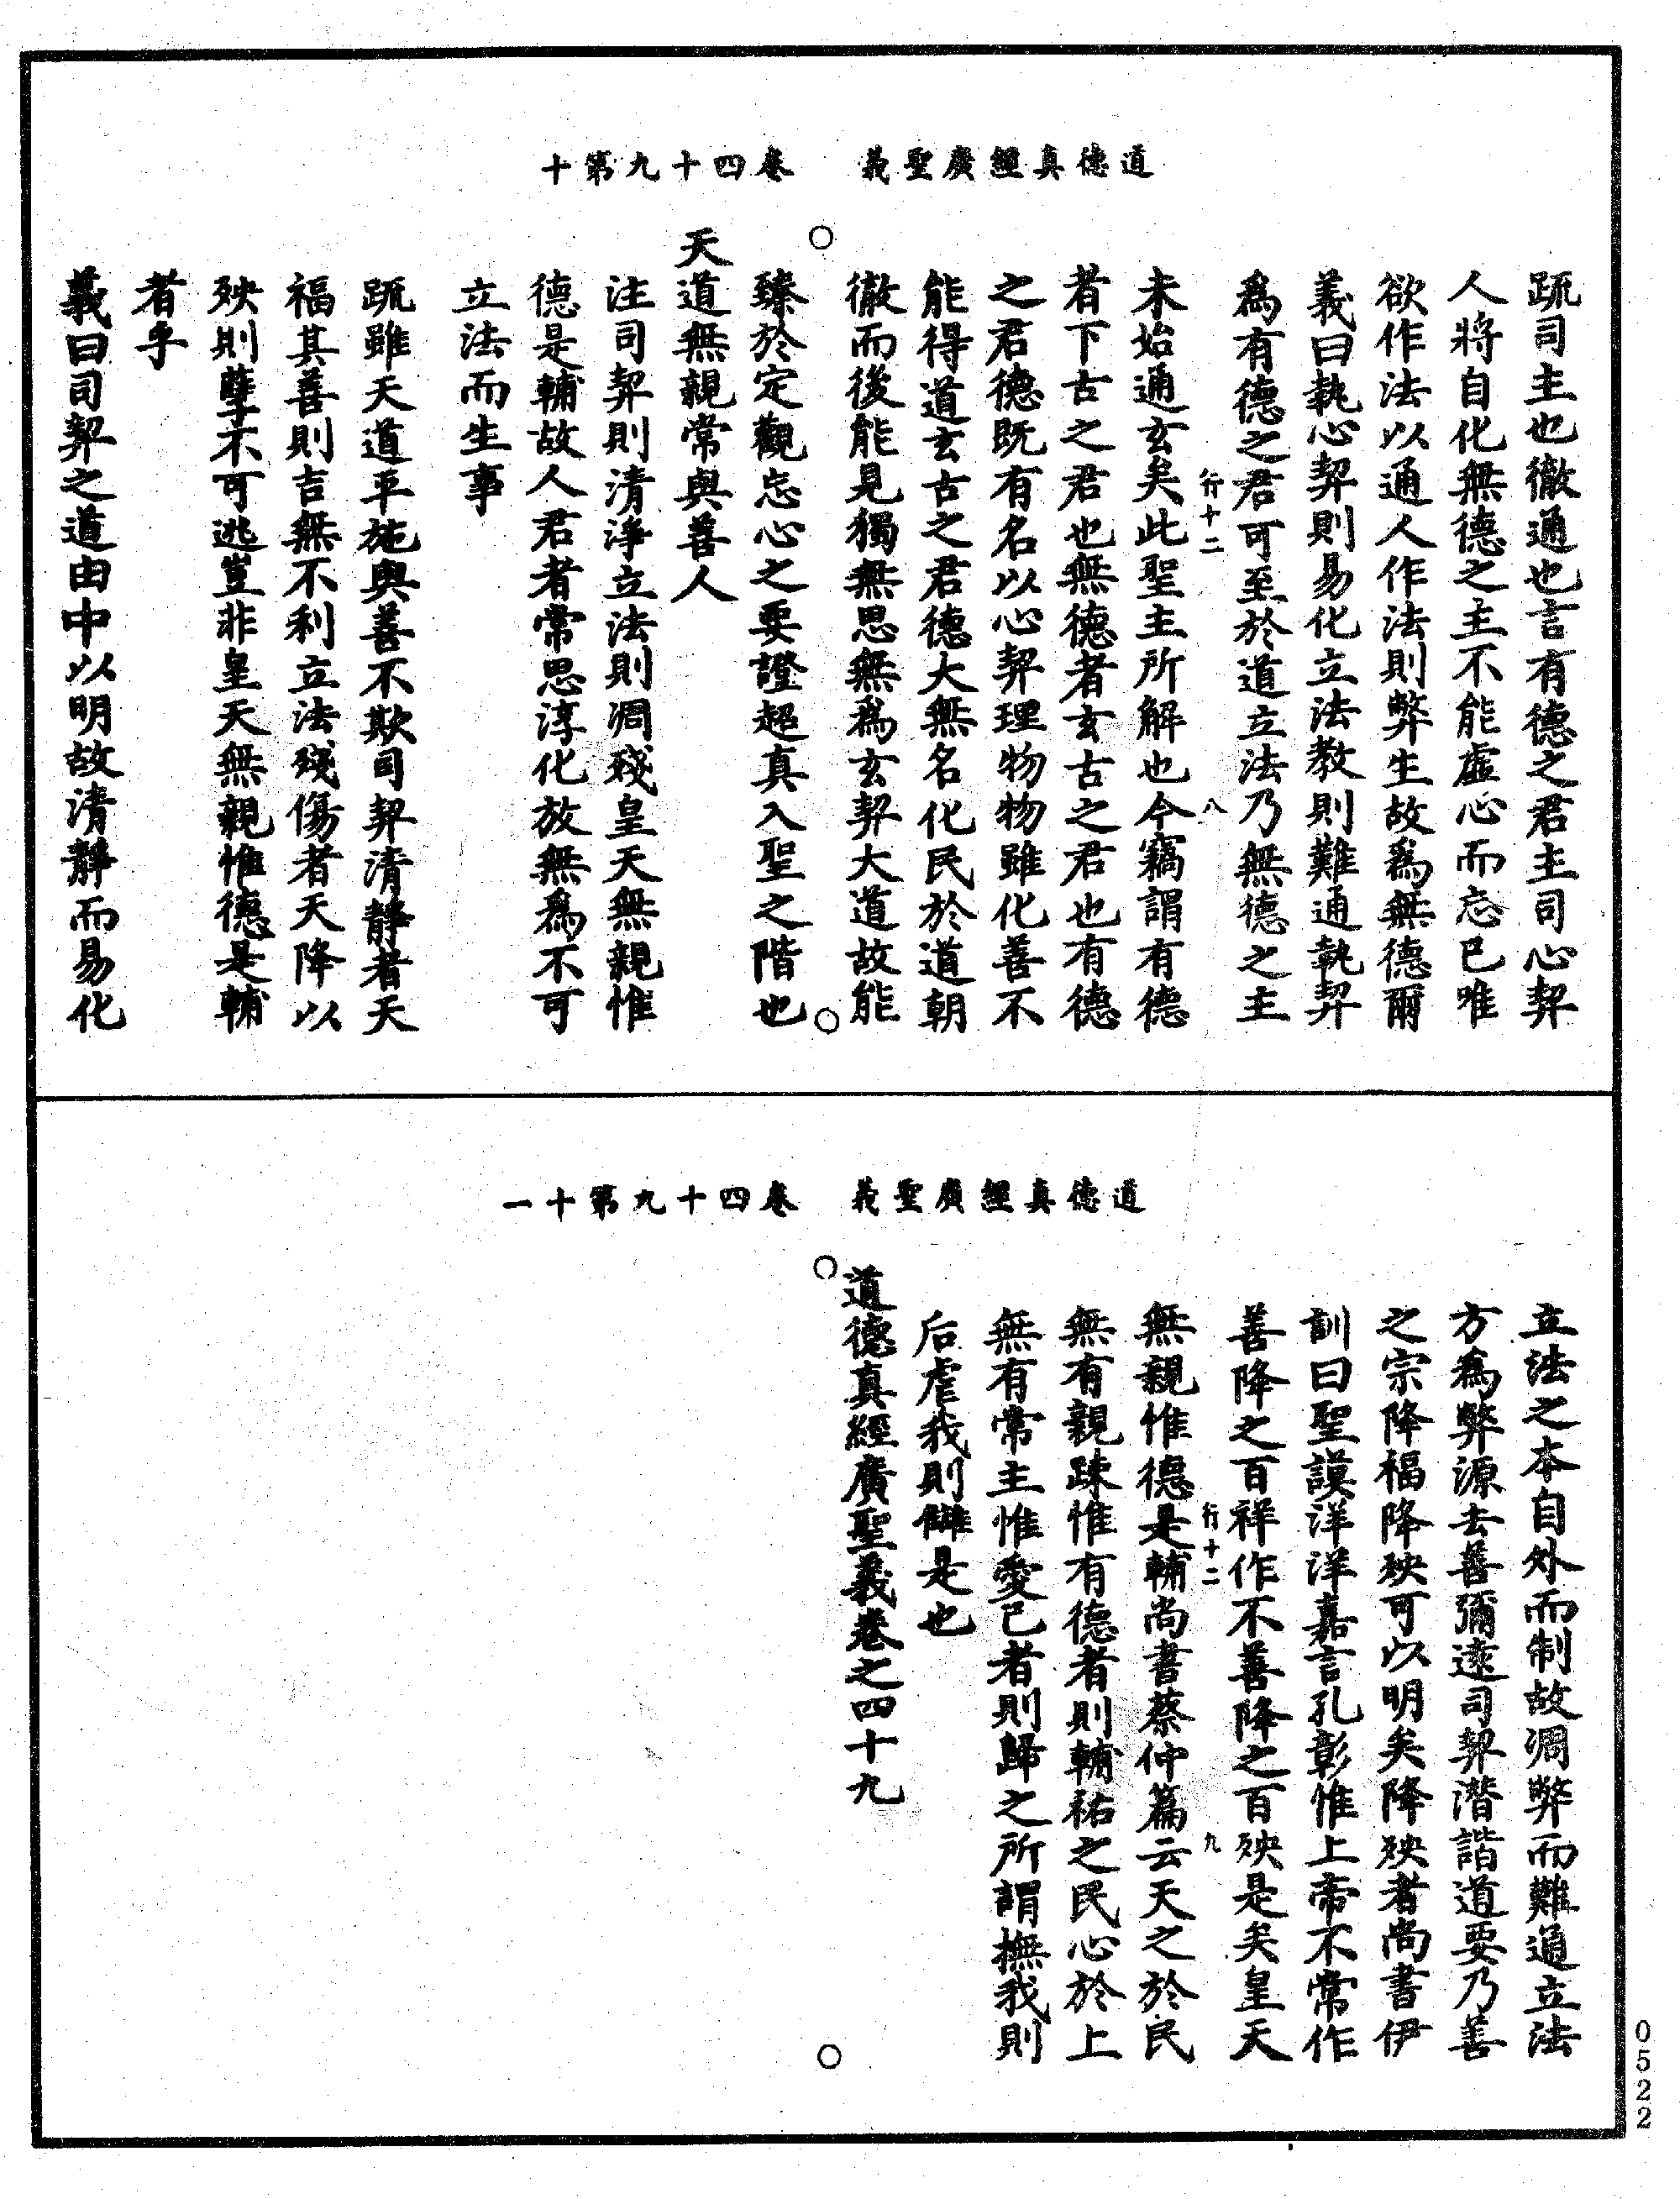 道德真經廣聖義　卷四十九第十
疏司主也徹通也言有德之君主司心契
人將自化無德之主不能虛心而忘已唯
欲作法以通人作法則弊生故爲無德爾
義曰執心契則易化立法教則難通執契
爲有德之君可至於道立法乃無德之主
行十二　八
未始通玄矣此聖主所解也今竊謂有德
者下古之君也無德者玄古之君也有德
之君德既有名以心契理物物雖化善不
能得道玄古之君德大無名化民於道朝
徹而後能見獨無思無爲玄契大道故能
臻於定觀忘心之要證超真入聖之階也
天道無親常與善人
注司契則清淨立法則凋殘皇天無親惟
德是輔故人君者常思淳化放無爲不可
立法而生事
疏雖天道平施與善不欺司契清靜者天
福其善則吉無不利立法殘傷者天降以
殃則孽不可逃豈非皇天無親惟德是輔
者乎
義曰司契之道由中以明故清靜而易化
道德真經廣聖義　卷四十九第十一
立法之本自外而制故凋弊而難通立法
方爲弊源去善彌遠司契潛諧道要乃善
之宗降福降殃可以明矣降殃者尚書伊
訓曰聖謨洋洋嘉言孔彰惟上帝不常作
善降之百祥作不善降之百殃是矣皇天
行十二　九
無親惟德是輔尚書蔡仲篇云天之於民
無有親疎惟有德者則輔祐之民心於上
無有常主惟愛己者則歸之所謂撫我則
后虐我則讎是也
道德真經廣聖義卷之四十九
0522